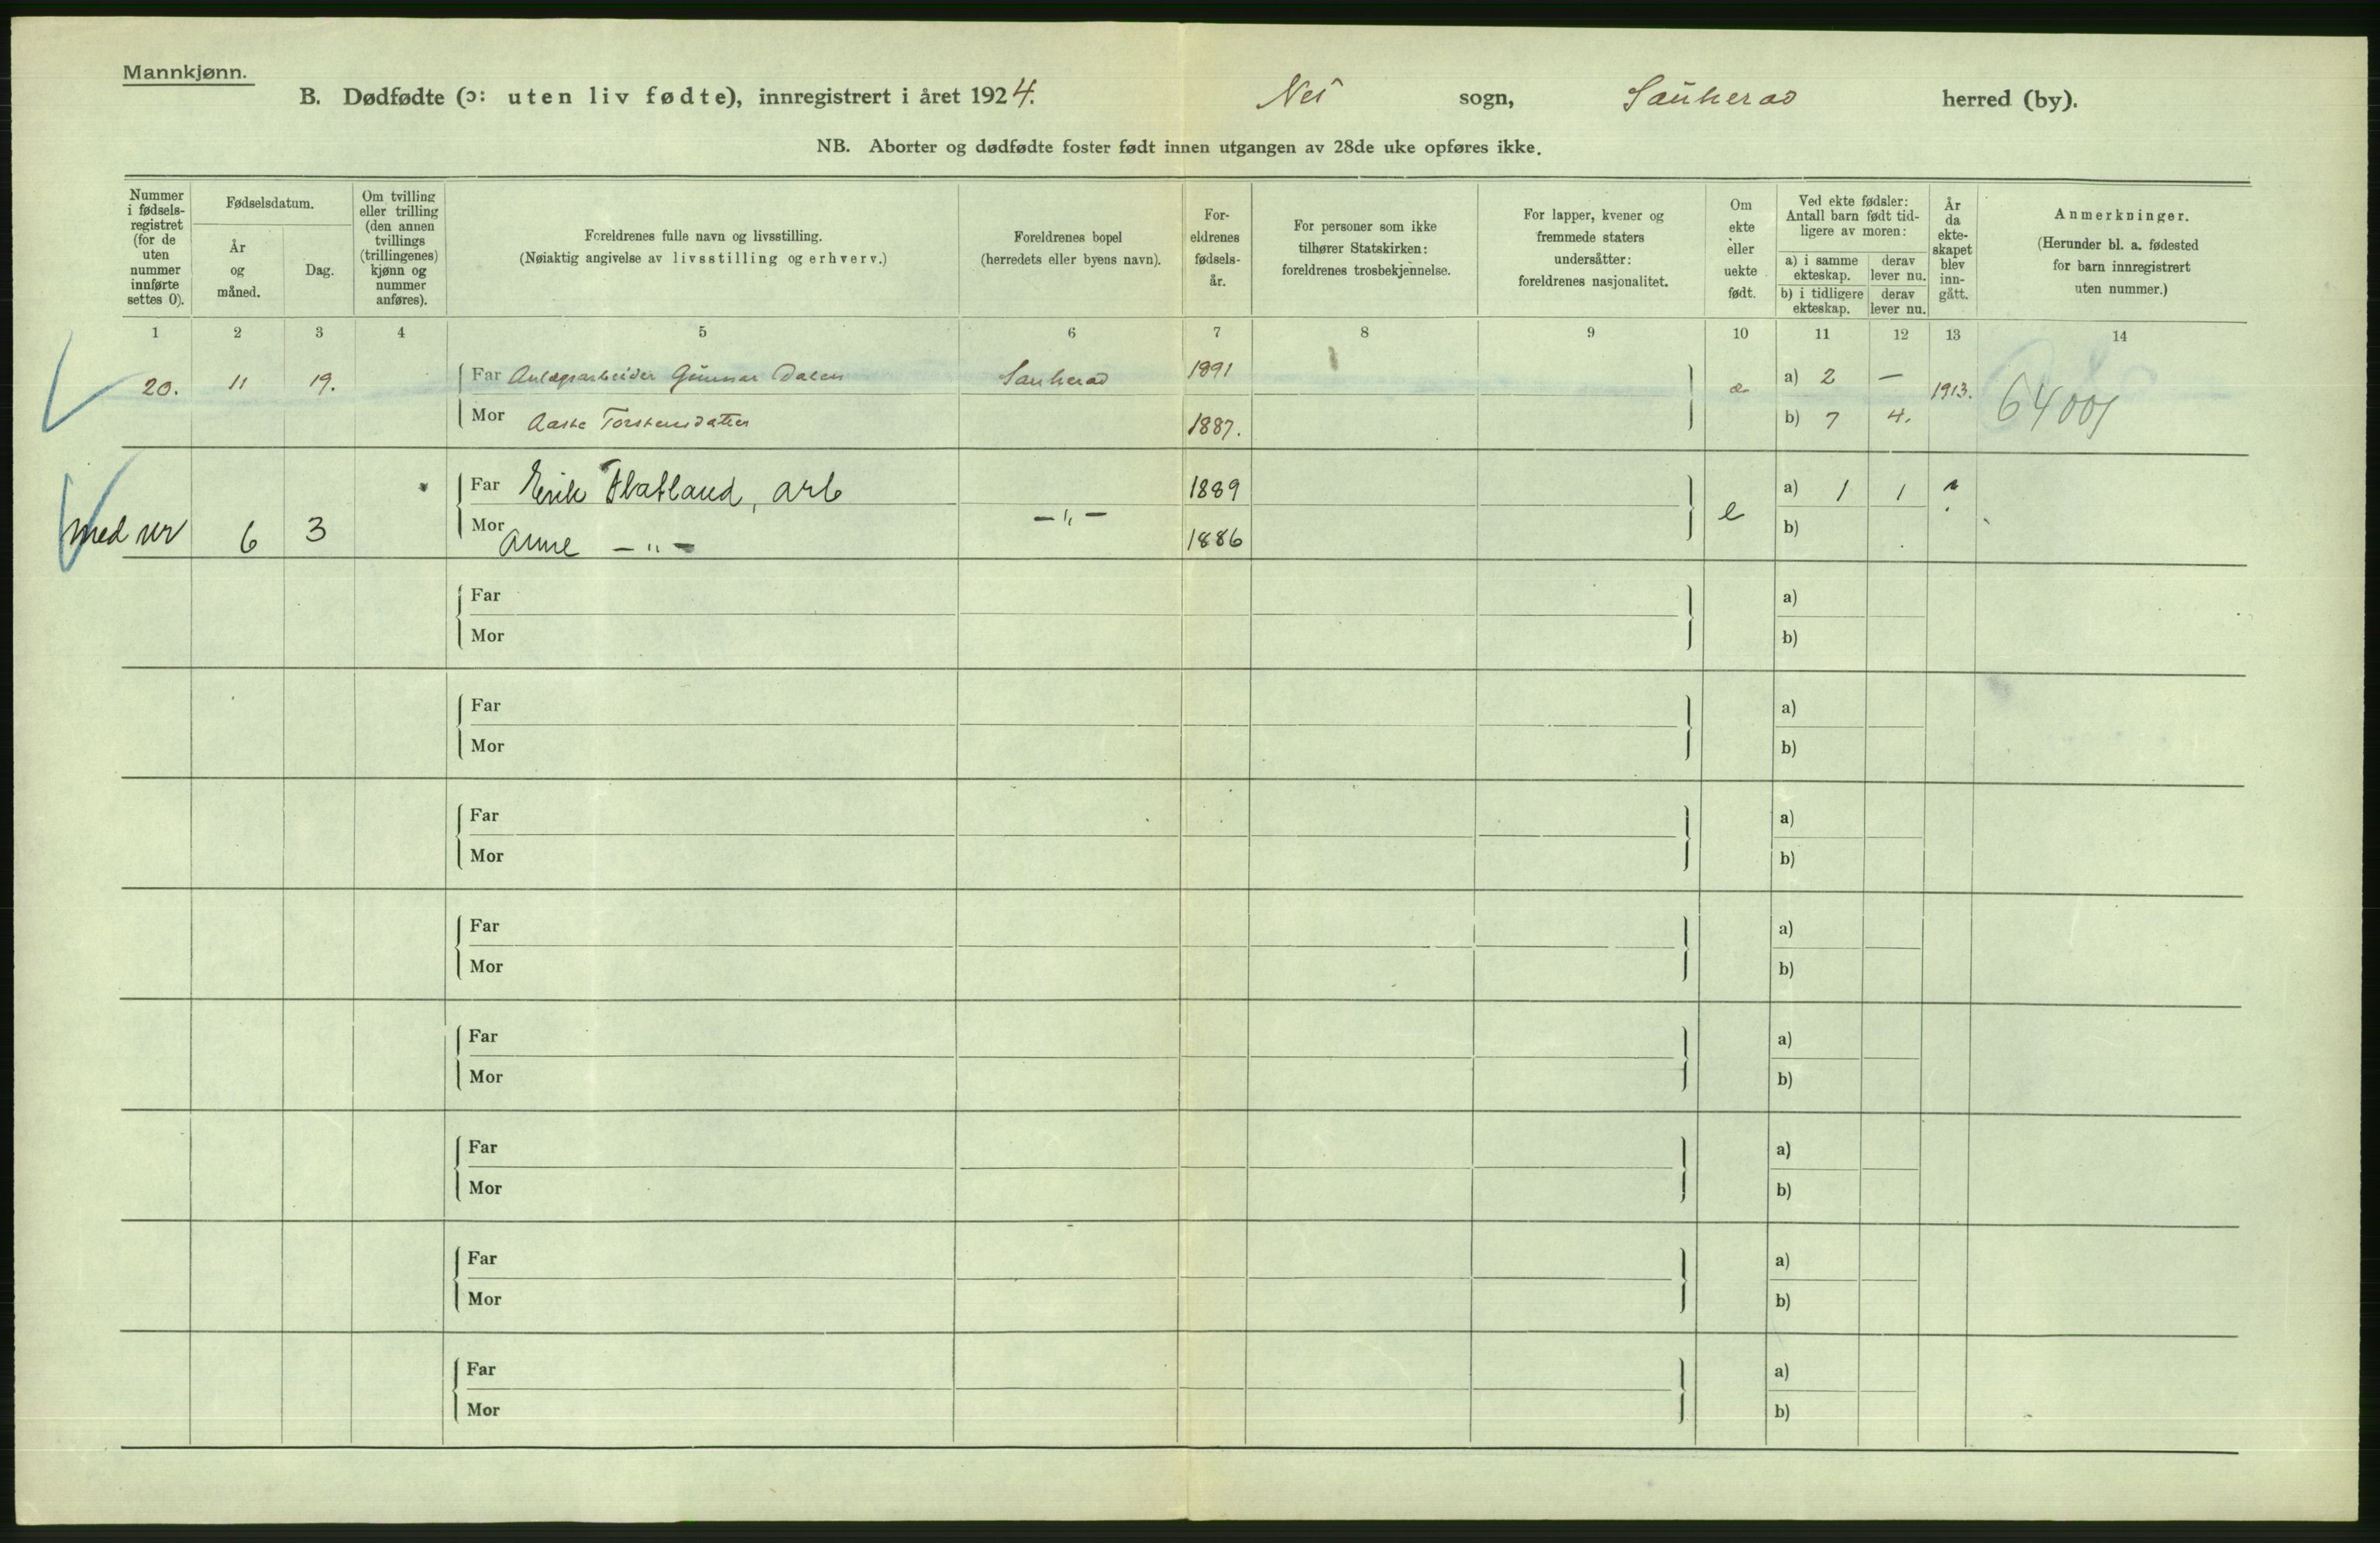 Mannkjønn.
B. Dødfødte (ɔ: uten liv fødte), innregistrert i året 1924. Nes sogn, Sauherad herred (by).
NB. Aborter og dødfødte foster født innen utgangen av 28de uke opføres ikke.
Nummer i fødsels-registret (for de uten nummer innførte settes 0).
Fødselsdatum.
År og måned.
Dag.
Om tvilling eller trilling (den annen tvillings (trillingenes) kjønn og nummer anføres).
Foreldrenes fulle navn og livsstilling.
(Nøiaktig angivelse av livsstilling og erhverv.)
Foreldrenes bopel
(herredets eller byens navn).
For-eldrenes fødsels-år.
For personer som ikke tilhører Statskirken: foreldrenes trosbekjennelse.
For lapper, kvener og fremmede staters undersåtter: foreldrenes nasjonalitet.
Om ekte eller uekte født.
Ved ekte fødsler: Antall barn født tid-ligere av moren:
a) i samme ekteskap.
derav lever nu.
b) i tidligere ekteskap.
derav lever nu.
År da ekte-skapet blev inn-gått.
Anmerkninger.
(Herunder bl. a. fødested for barn innregistrert uten nummer.)
1 2 3 4 5 6 7 8 9 10 11 12 13 14
20. 11 19. Far Anlægsarbeider Gunnar Dalen Sauherad 1891 æ a) 2 — 1913. 64001
Mor Aaste Torstensdatter 1887. b) 7 4.
Far Erik Flatland, arb 1889 a) 1 1
med nr 6 3 Mor Anne — " — — " — 1886 e b)
Far a)
Mor b)
Far a)
Mor b)
Far a)
Mor b)
Far a)
Mor b)
Far a)
Mor b)
Far a)
Mor b)
Far a)
Mor b)
Far a)
Mor b)